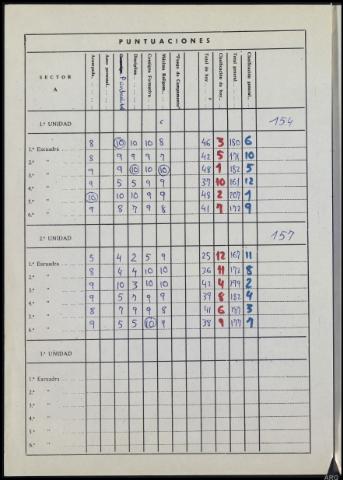 PUNTUACIONES
SECTOR A Acampada, Aseo personal, Puntualidad Disciplina, Consigna Formativa "Fuego de Campamento" Total de hoy Clasificación de hoy, Total general Clasificación general,
1.ª UNIDAD 154
1.ª Escuadra 8 10 10 10 8 46 3 180 6
2.ª " 8 9 9 9 7 42 5 171 10
3.ª " 9 9 10 10 10 48 1 182 5
4.ª " 9 5 5 9 9 37 10 161 12
5.ª " 10 10 10 9 9 48 2 207 1
6.ª " 9 8 7 9 8 41 7 172 9
2.ª UNIDAD 157
1.ª Escuadra 5 4 2 5 9 25 12 167 11
2.ª " 8 4 4 10 10 36 11 172 8
3.ª " 9 10 3 10 10 42 4 199 2
4.ª " 9 5 7 9 9 39 8 182 4
5.ª " 8 7 9 9 8 41 6 3
6.ª " 9 5 5 10 9 38 9 177 7
3.ª UNIDAD
1.ª Escuadra
2.ª "
3.ª "
4.ª "
5.ª "
6.ª "